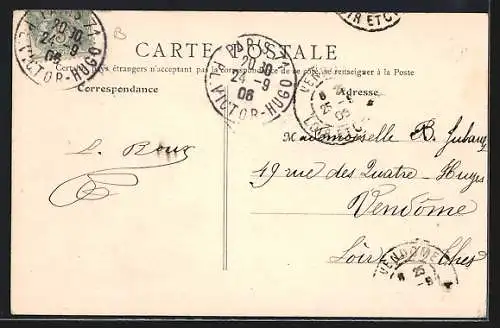 PARIS 71
20 30
24 - 9
06
PL. VICTOR-HUGO
OIR ET CH
CARTE POSTALE
PARIS 71
20 30
24 - 9
06
PL. VICTOR-HUGO
Certains pays étrangers n'acceptant pas la correspondance de ce côté, se renseigner à la Poste
Correspondance
Adresse
Mademoiselle B.
L. Roux
19 rue des Quatre-Huyes
Vendôme
Loir et Cher
VENDOME
25